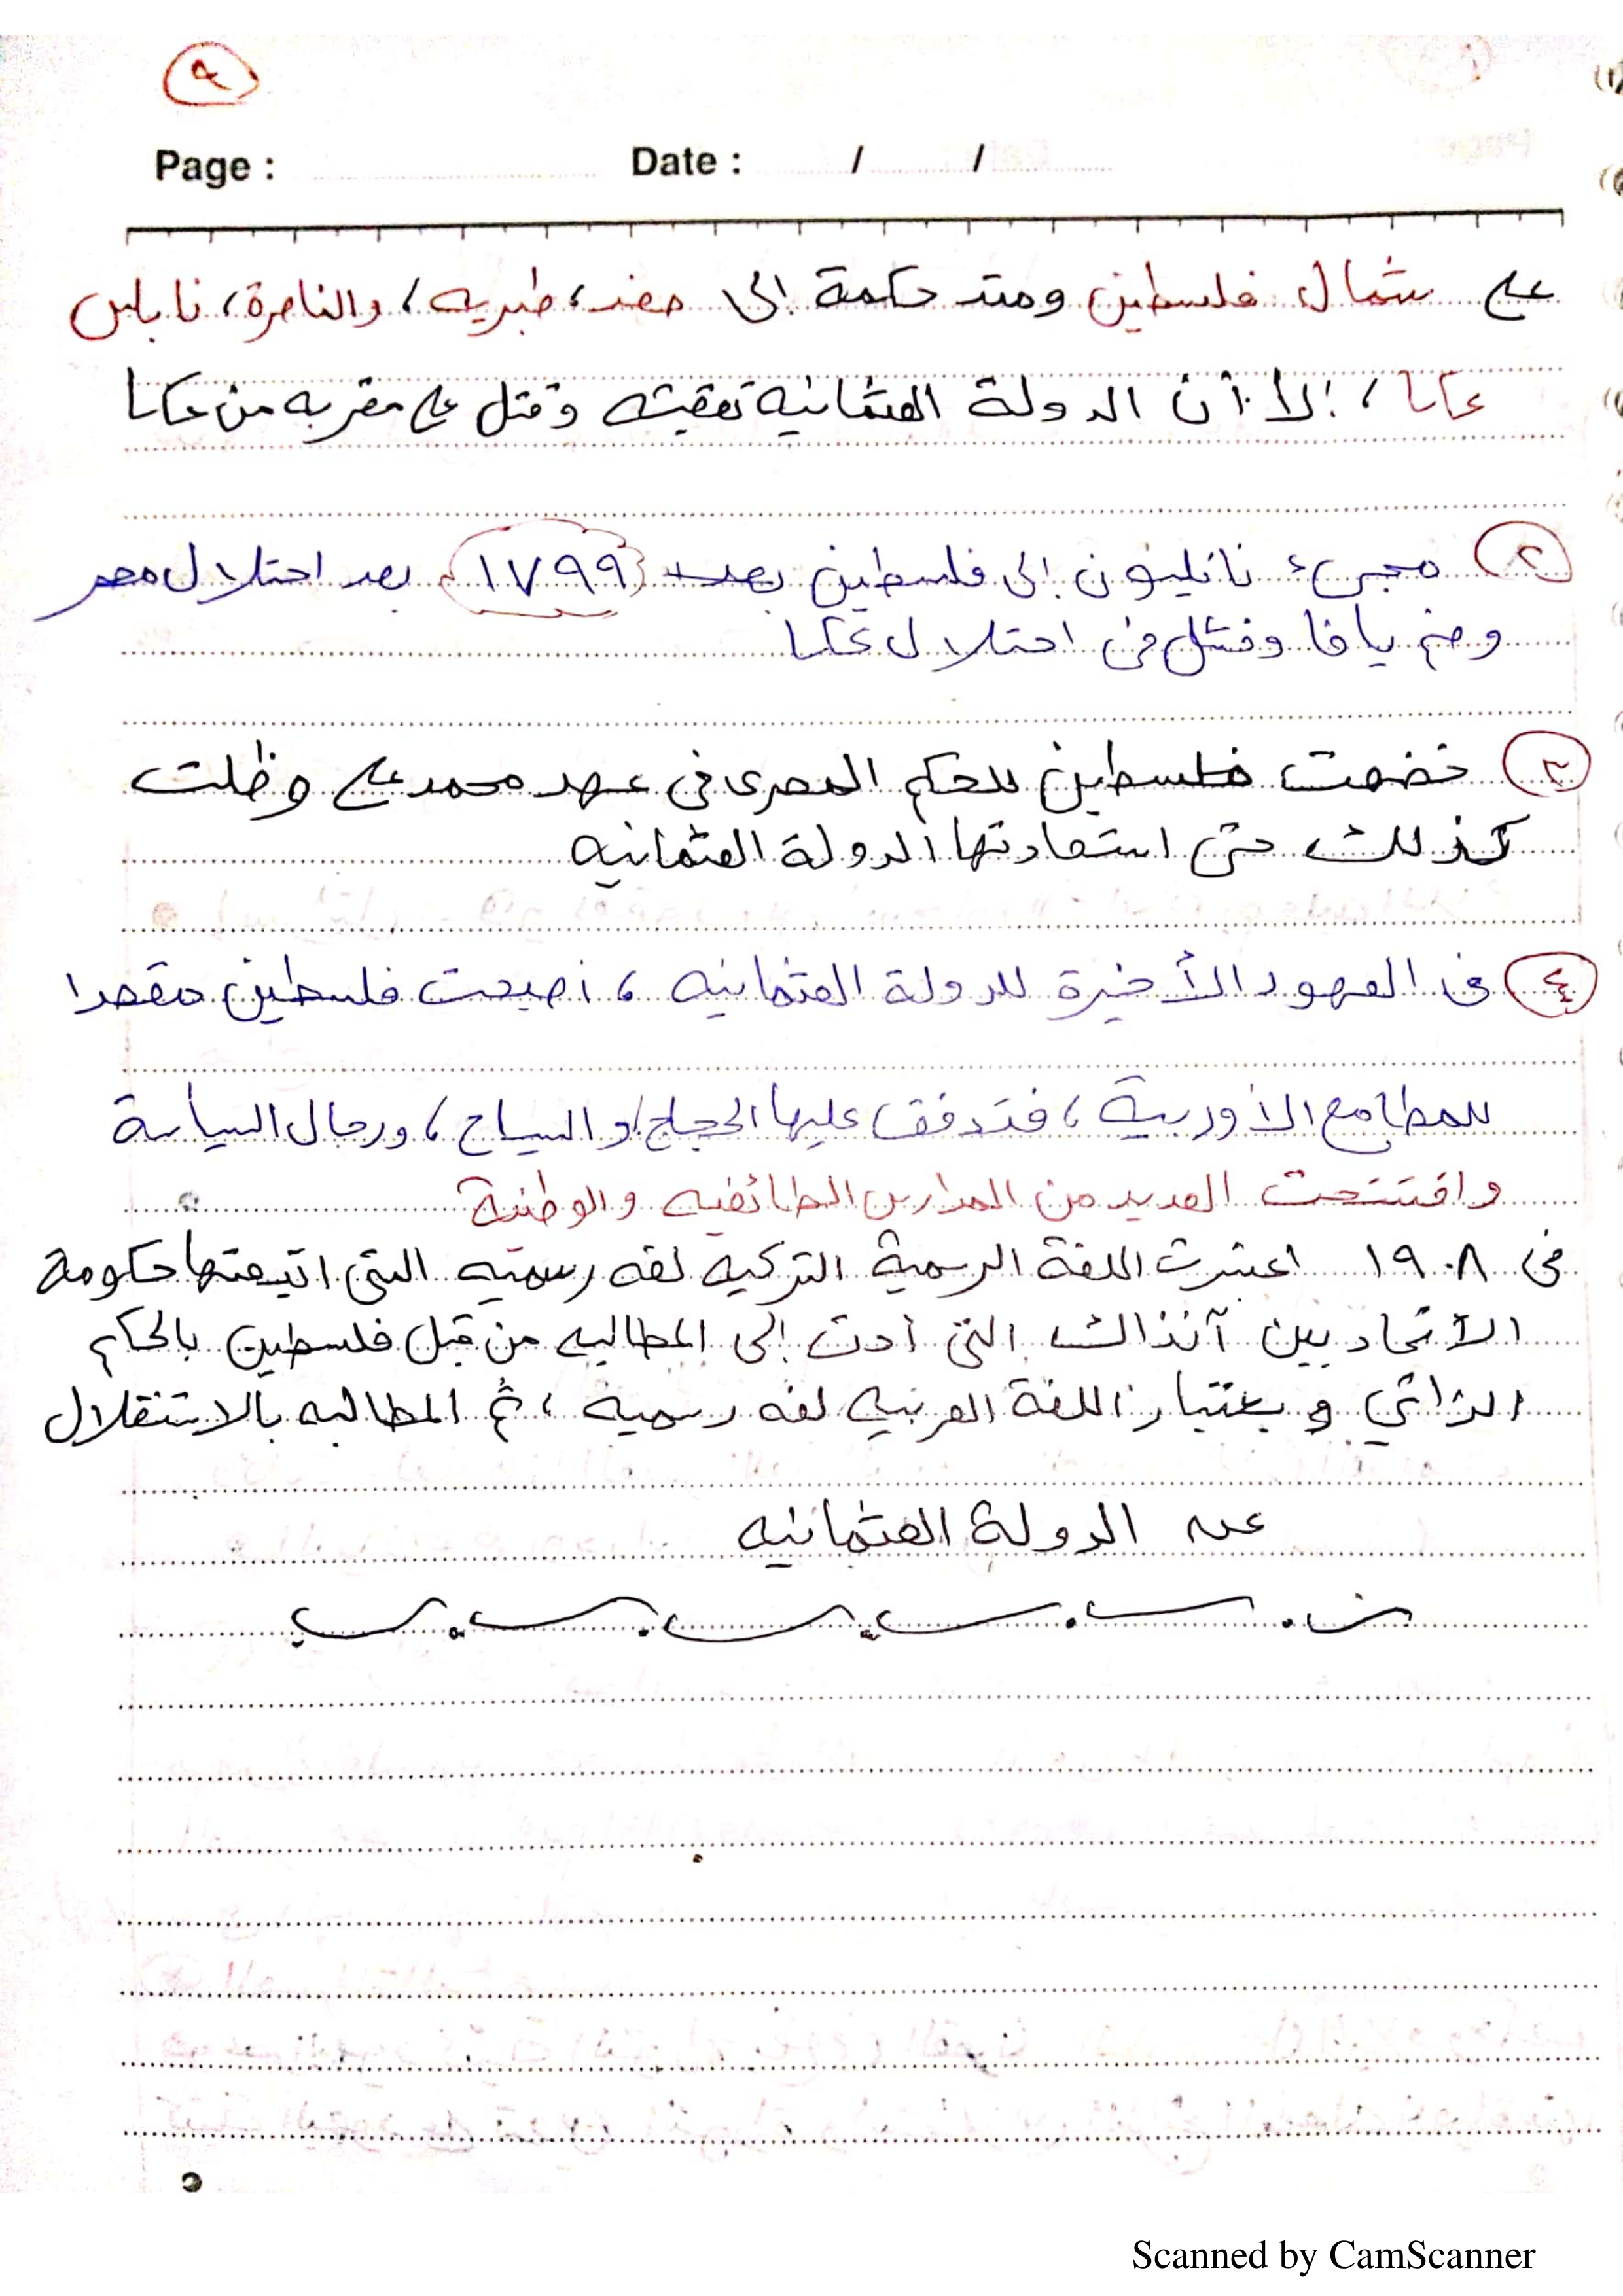 ٩
Page : Date : / /
على شمال فلسطين ومتد حكمة إلى صفد، طبريه، والناصرة، نابلس
عكا، إلا أن الدولة العثمانيه تعقبته وقتل على مقربه من عكا
٢ مجىء نابليون إلى فلسطين بعد (١٧٩٩) بعد احتلال مصر
وضم يافا وفشل في احتلال عكا
٣ خضعت فلسطين للحكم المصرى في عهد محمد على وظلت
كذلك حتى استعادتها الدولة العثمانيه
٤ في العهود الأخيرة للدولة العثمانيه، أصبحت فلسطين مقصدا
للمطامع الأوربية، فتدفق عليها الحجاج، والسياح، ورجال السياسة
وافتتحت العديد من المدارس الطائفيه والوطنية
في ١٩٠٨ اعتبرت اللغة الرسمية التركيه لغه رسميه التي اتبعتها حكومة
الاتحاديين آنذاك التي أدت إلى المطالبه من قبل فلسطين بالحكم
الذاتي و بعتبار اللغة العربيه لغه رسمية، ثم المطالبه بالاستقلال
عن الدولة العثمانيه
Scanned by CamScanner